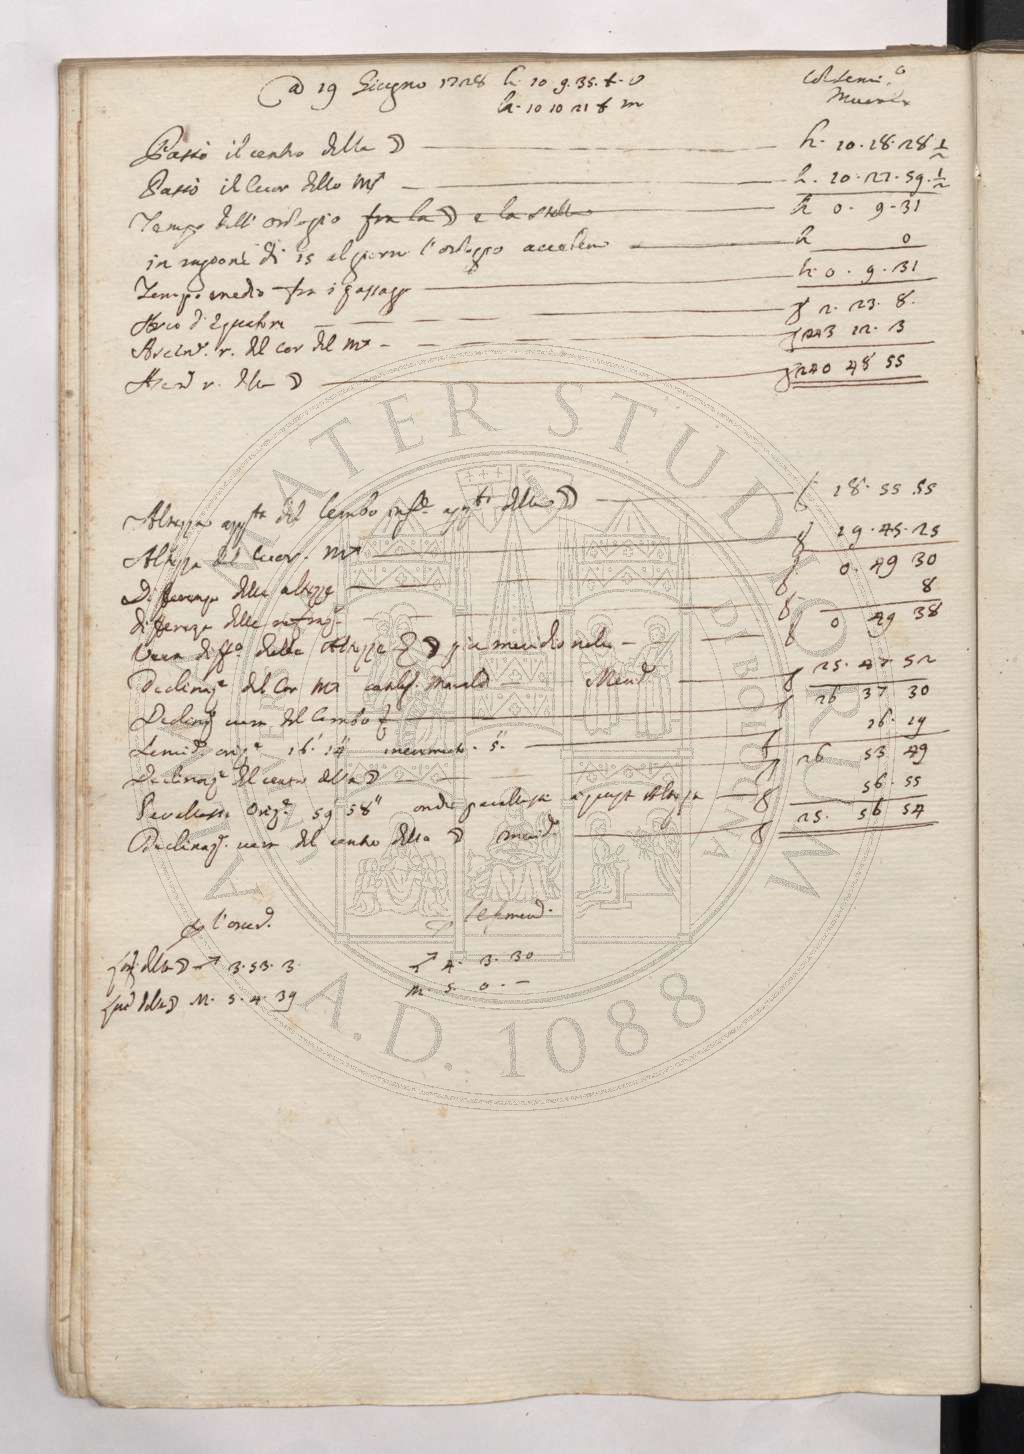 A 19 Giugno 1728 h. 10. 9. 35. t. v
h. 10 10 21 t m
Col Semi.º
Murale
Passò il centro della ☽ h. 10. 18. 28 ½
Passò il Cuor dello ♏ h. 10. 27. 59. ½
Tempo dell' orologio fra la ☽ e la stella h 0. 9. 31
in ragione di 15 al giorno l'orologgo accelera h 0
Tempo medio fra i passagg h. 0. 9. 31
Arco d'Equatore g 2. 23. 8.
Ascens. r. del Cor del ♏ g 243 12. 3
Ascens r. della ☽ g 240 48 55
Altezza appte del lembo infe. appte della ☽ g 18. 55 55
Altezza del Cuor. ♏ g 19. 45. 25
Differenza delle altezze g. 0. 49 30
differenza delle refraz. g. 8
Vera diffa delle Altezze ☽ più meridionale g 0 49 38
Declinaze del Cor ♏ Merid g 25. 47 52
Declinaz vera del lembo g 26 37 30
Semid. oriz. 16' 14" incremento. 5" 16. 19
Declinaz. del centro della ☽ g 26 53 49
Parallasse Oriz. 59' 58" onde parallasse a questa Altezza g 56. 55
Declinaz. vera del centro della ☽ merid g 25. 56 54
l'occid.
Sett merid.
della ☽ ♐ 3. 53. 3.
♐ 4. 3. 30
della ☽ M. 5. 4. 39
M. 5. 0. –
ALMA MATER STUDIORUM
UNIVERSITÀ DI BOLOGNA
A.D. 1088